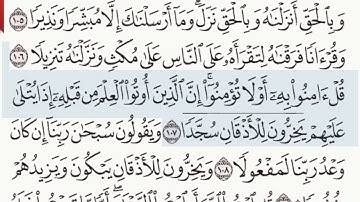 وَبِالْحَقِّ أَنزَلْنَٰهُ وَبِالْحَقِّ نَزَلَ ۗ وَمَا أَرْسَلْنَٰكَ إِلَّا مُبَشِّرًا وَنَذِيرًا ١٠٥
وَقُرْءَانًا فَرَقْنَٰهُ لِتَقْرَأَهُۥ عَلَى النَّاسِ عَلَىٰ مُكْثٍ وَنَزَّلْنَٰهُ تَنزِيلًا ١٠٦
قُلْ ءَامِنُوا بِهِۦٓ أَوْ لَا تُؤْمِنُوٓا ۚ إِنَّ الَّذِينَ أُوتُوا الْعِلْمَ مِن قَبْلِهِۦٓ إِذَا يُتْلَىٰ
عَلَيْهِمْ يَخِرُّونَ لِلْأَذْقَانِ سُجَّدًا ١٠٧ وَيَقُولُونَ سُبْحَٰنَ رَبِّنَآ إِن كَانَ
وَعْدُ رَبِّنَا لَمَفْعُولًا ١٠٨ وَيَخِرُّونَ لِلْأَذْقَانِ يَبْكُونَ وَيَزِيدُهُمْ